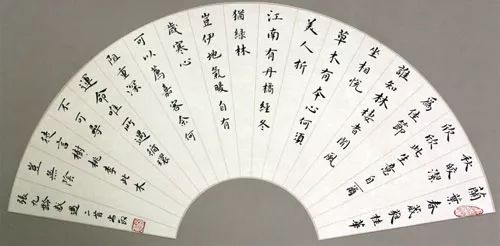 蘭葉春葳蕤桂華
秋皎潔
欣欣此生意自爾
為佳節
誰知林棲者聞風
坐相悅
草木有本心何須
美人折
江南有丹橘經冬
猶綠林
豈伊地氣暖自有
歲寒心
可以薦嘉客奈何
阻重深
運命唯所遇循環
不可尋
徒言樹桃李此木
豈無陰
張九齡感遇二首